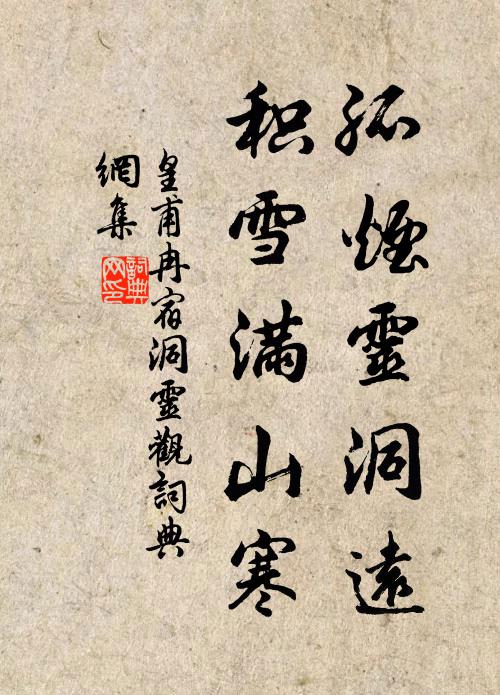 孤煙靈洞遠
积雪满山寒
皇甫冉宿洞靈觀詞典
網集
詞典
网印